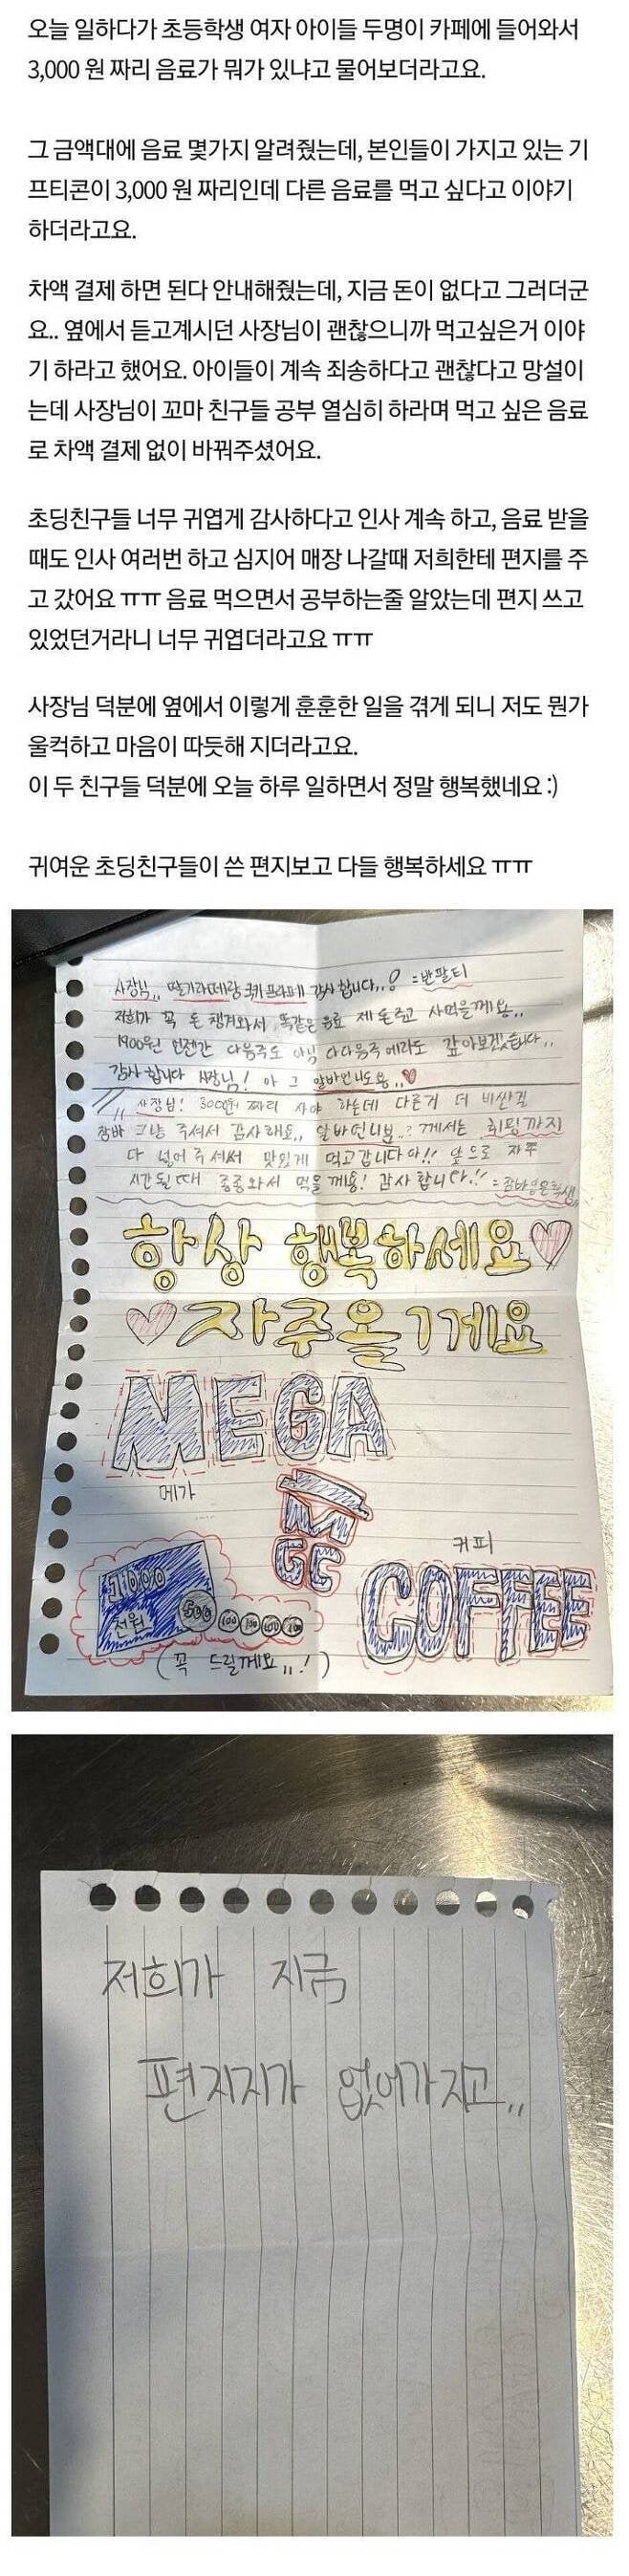 오늘 일하다가 초등학생 여자 아이들 두명이 카페에 들어와서
3,000 원 짜리 음료가 뭐가 있냐고 물어보더라고요.
그 금액대에 음료 몇가지 알려줬는데, 본인들이 가지고 있는 기
프티콘이 3,000 원 짜리인데 다른 음료를 먹고 싶다고 이야기
하더라고요.
차액 결제 하면 된다 안내해줬는데, 지금 돈이 없다고 그러더군
요.. 옆에서 듣고계시던 사장님이 괜찮으니까 먹고싶은거 이야
기 하라고 했어요. 아이들이 계속 죄송하다고 괜찮다고 망설이
는데 사장님이 꼬마 친구들 공부 열심히 하라며 먹고 싶은 음료
로 차액 결제 없이 바꿔주셨어요.
초딩친구들 너무 귀엽게 감사하다고 인사 계속 하고, 음료 받을
때도 인사 여러번 하고 심지어 매장 나갈때 저희한테 편지를 주
고 갔어요 ㅠㅠ 음료 먹으면서 공부하는줄 알았는데 편지 쓰고
있었던거라니 너무 귀엽더라고요 ㅠㅠ
사장님 덕분에 옆에서 이렇게 훈훈한 일을 겪게 되니 저도 뭔가
울컥하고 마음이 따듯해 지더라고요.
이 두 친구들 덕분에 오늘 하루 일하면서 정말 행복했네요 :)
귀여운 초딩친구들이 쓴 편지보고 다들 행복하세요 ㅠㅠ
사장님,, 딸기라떼랑 쿠키프라페 감사합니다..! =반팔티
저희가 꼭 돈 챙겨와서 똑같은 음료 제 돈주고 사먹을께요..
1900원 언젠간 다음주도 아님 다다음주 에라도 갚아보겠습니다..
감사합니다 사장님! 아 그 알바언니도용..♥
사장님! 3000원 짜리 사야 하는데 다른거 더 비싼걸
그냥 주셔서 감사해요.. 알바언니분..? 께서는 휘핑까지
다 넣어주셔서 맛있게 먹고갑니다아!! 앞으로 자주
시간될때 종종와서 먹을께용! 감사합니다!!
항상 행복하세요♡
♡자주올게요
MEGA
메가
M
GC
커피
COFFEE
1000
천원
500 100 100 100 100
(꼭 드릴께요,,!)
저희가 지금
편지지가 없어가지고..